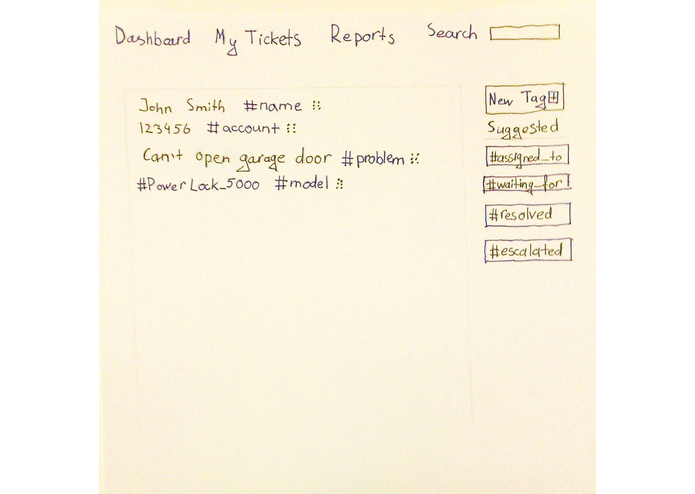 Dashboard My Tickets Reports Search
John Smith #name
123456 #account
Can't open garage door #problem
#PowerLock_5000 #model
New Tag
Suggested
#assigned_to
#waiting_for
#resolved
#escalated